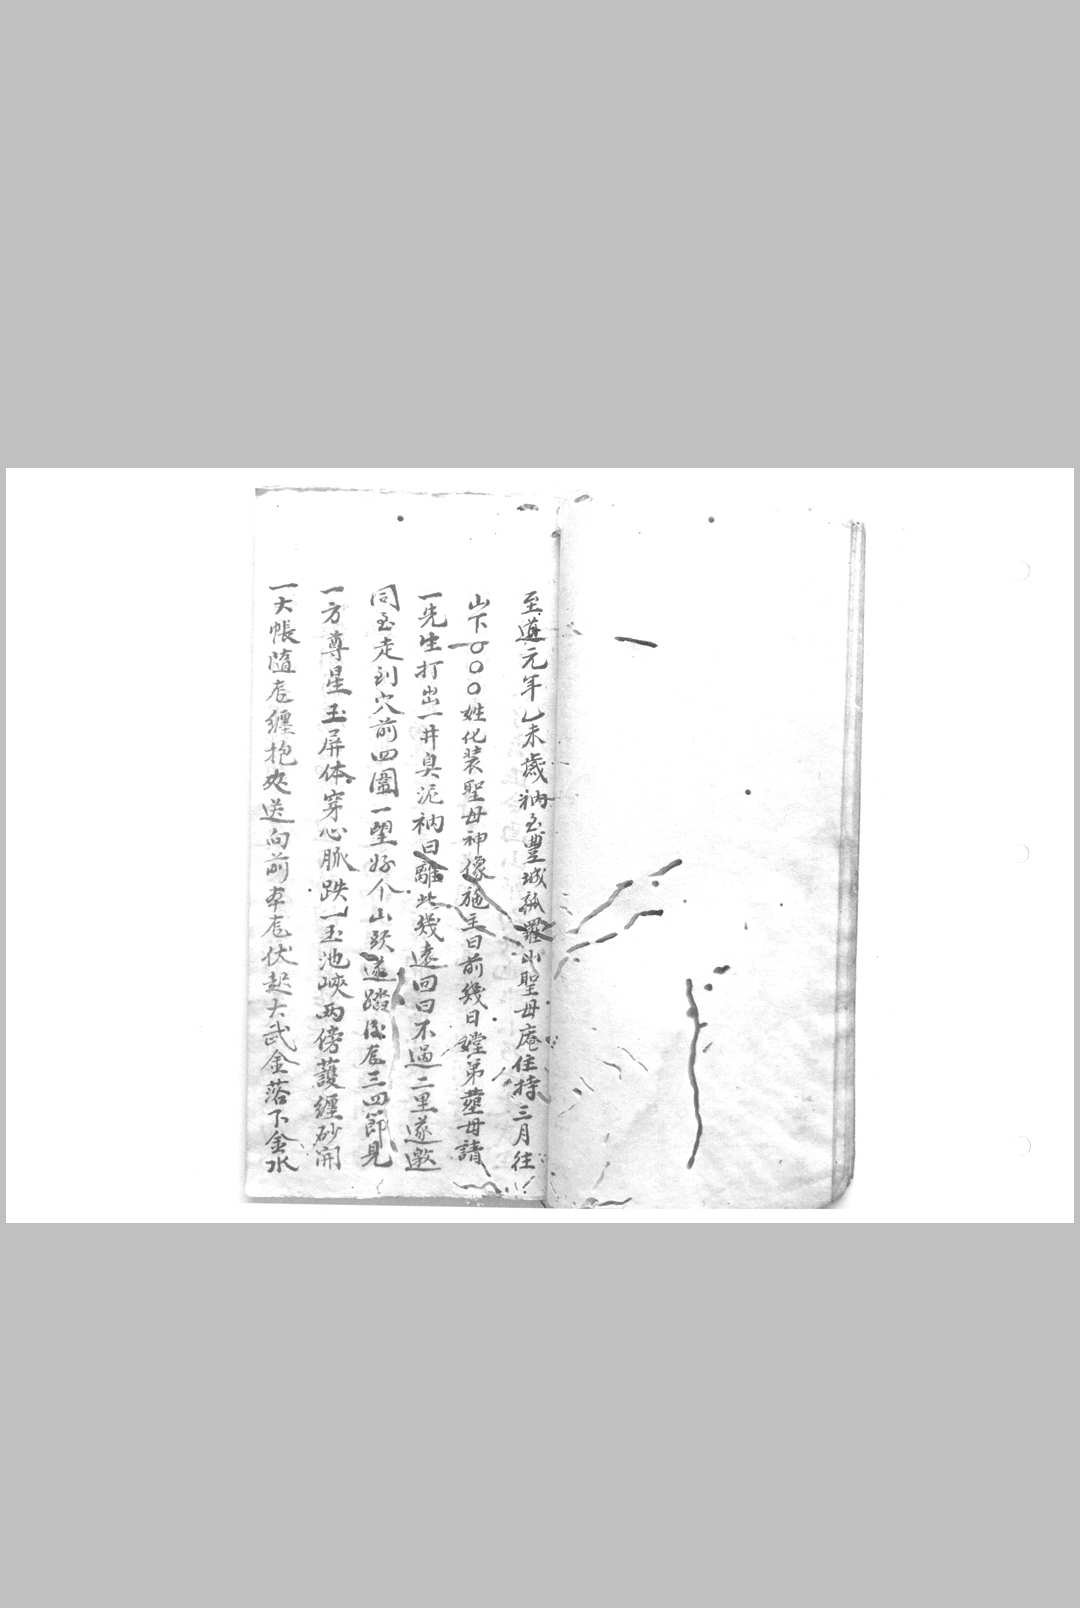 至道元年乙未歲衲至豐城孤羅山聖母庵住持三月往
山下一○○○姓化装聖母神像施主曰前幾日嬞弟塟母請
一先生打出一井臭泥衲曰離此幾遠回曰不過二里遂邀
同至走到穴前四圍一望好个山頭遂踏後龙三四節見
一方尊星玉屏体穿心脈跌一玉池峽两傍護纏砂開
一大帳隨龙纏抱夾送向前本龙伏起大武金落下金水